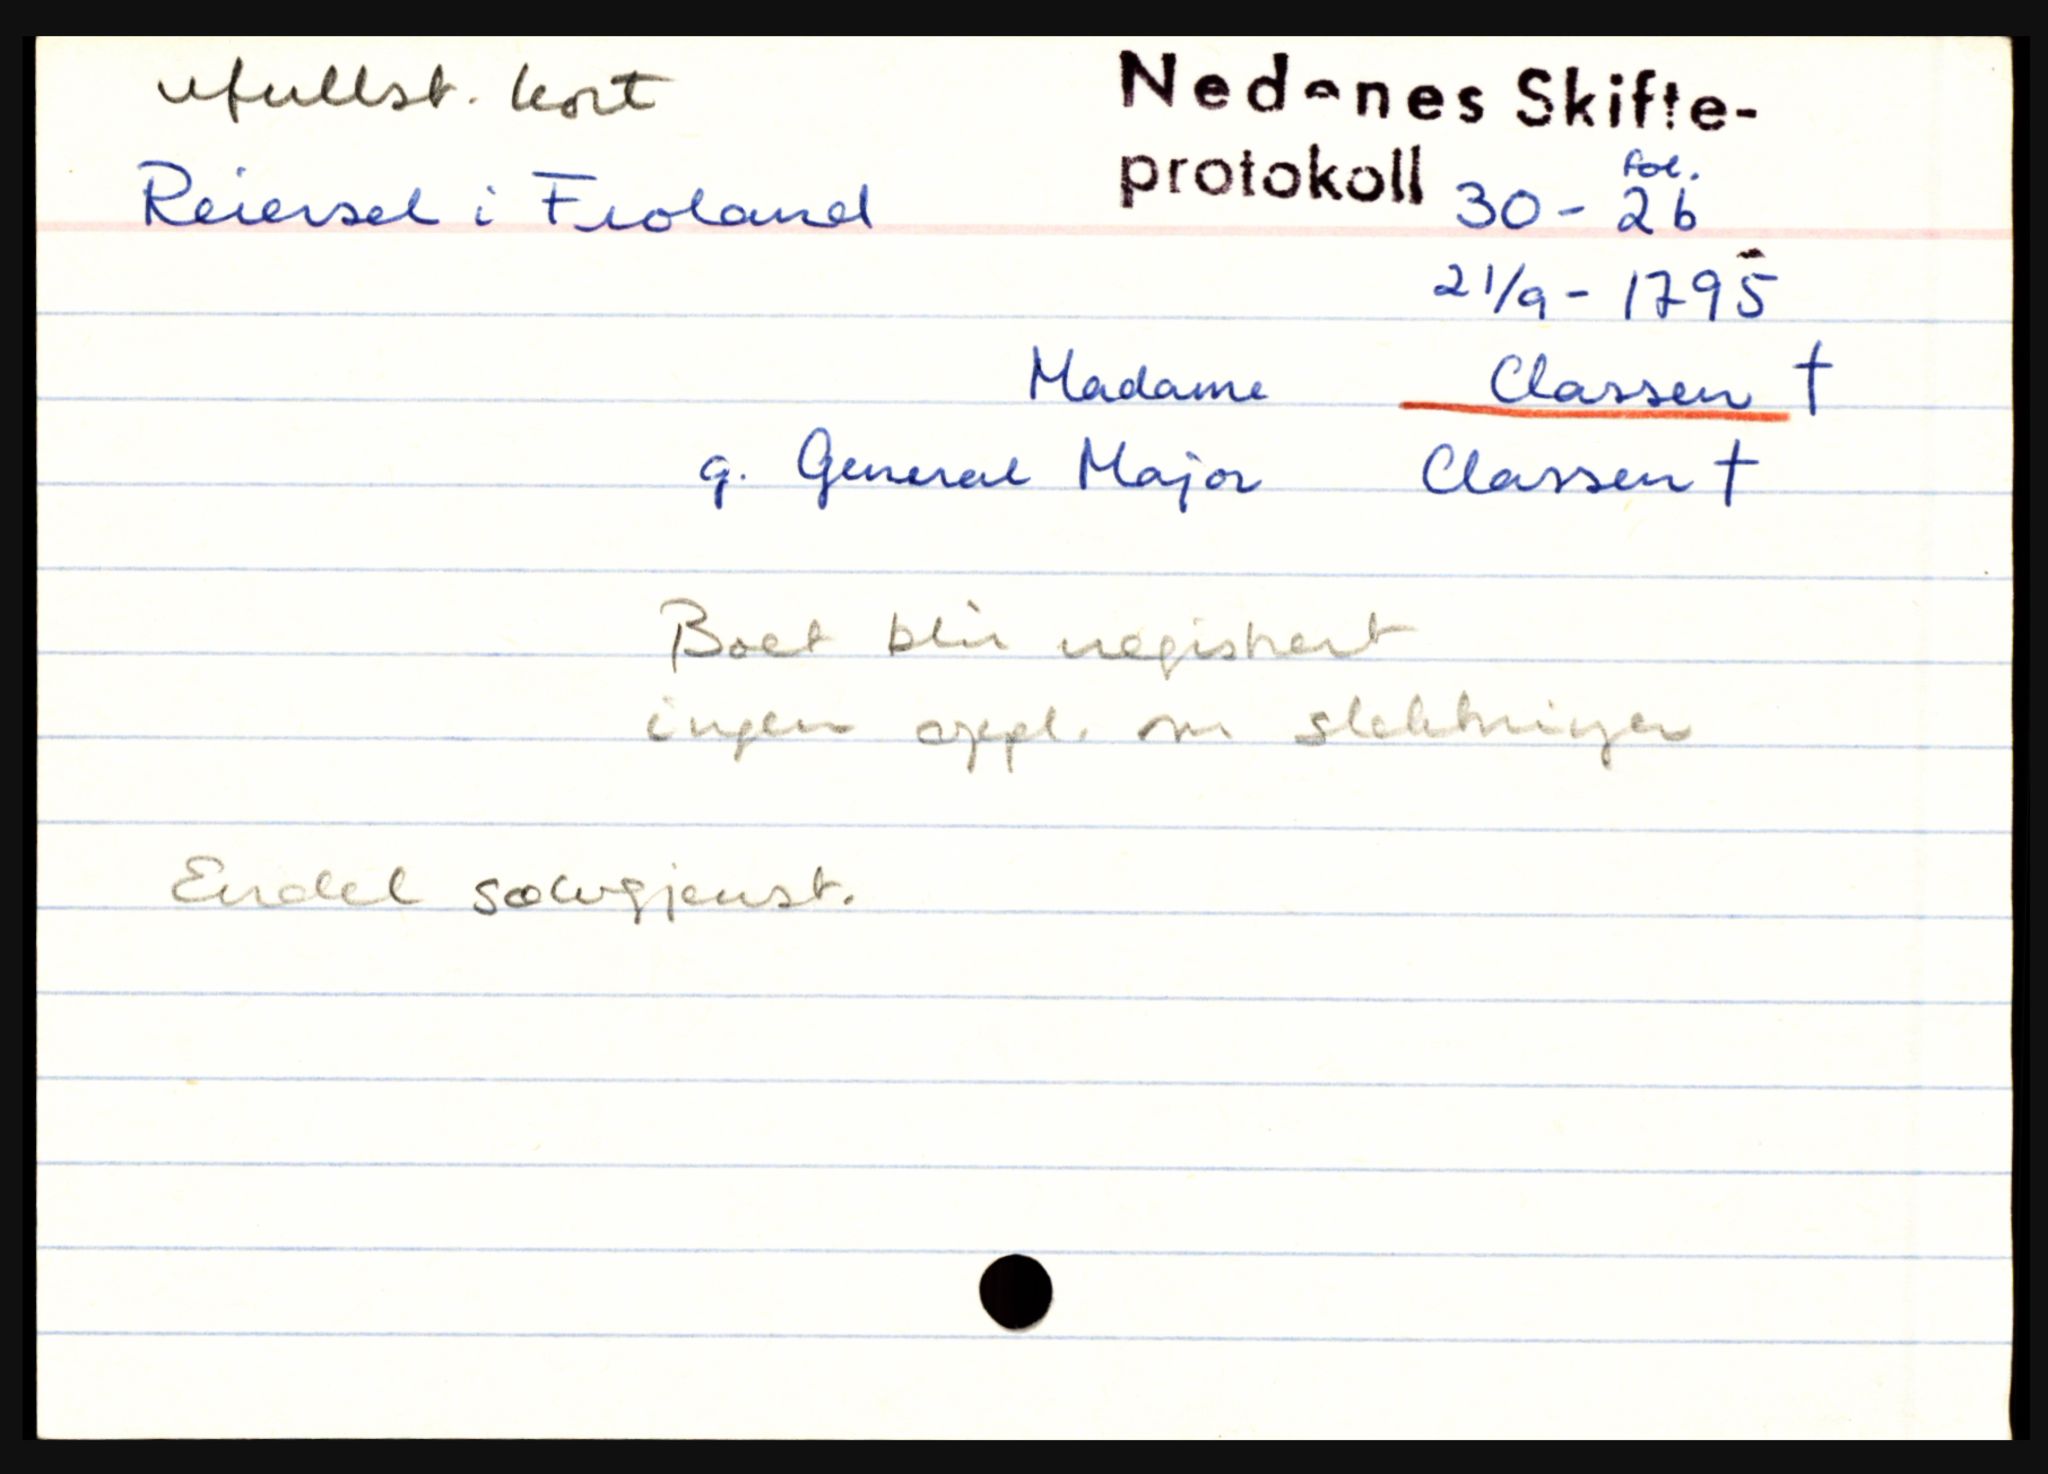 ufullst. kort
Nedenes Skifte-
protokoll 30 - fol. 26
Reiersel i Froland
21/9 - 1795
Madame Classen †
g. General Major Classen †
Boet blir registrert
ingen oppl. om slektninger
Endel sølvgjenst.